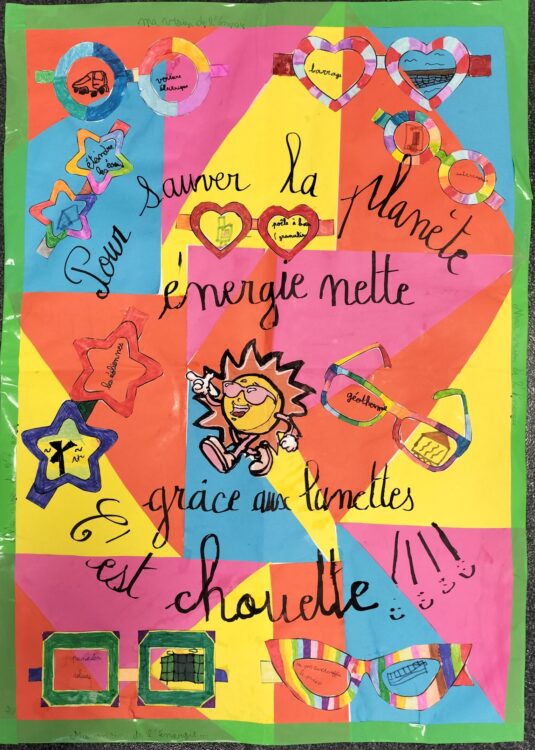 Ma maison de l'énergie
voiture
électrique
barrage
éteindre
les écrans
Pour sauver la planète
poêle à bois
(granulés)
énergie nette
les éoliennes
géothermie
grâce aux lunettes
C'est chouette !!!!
panneaux
solaires
Ma maison de l'énergie